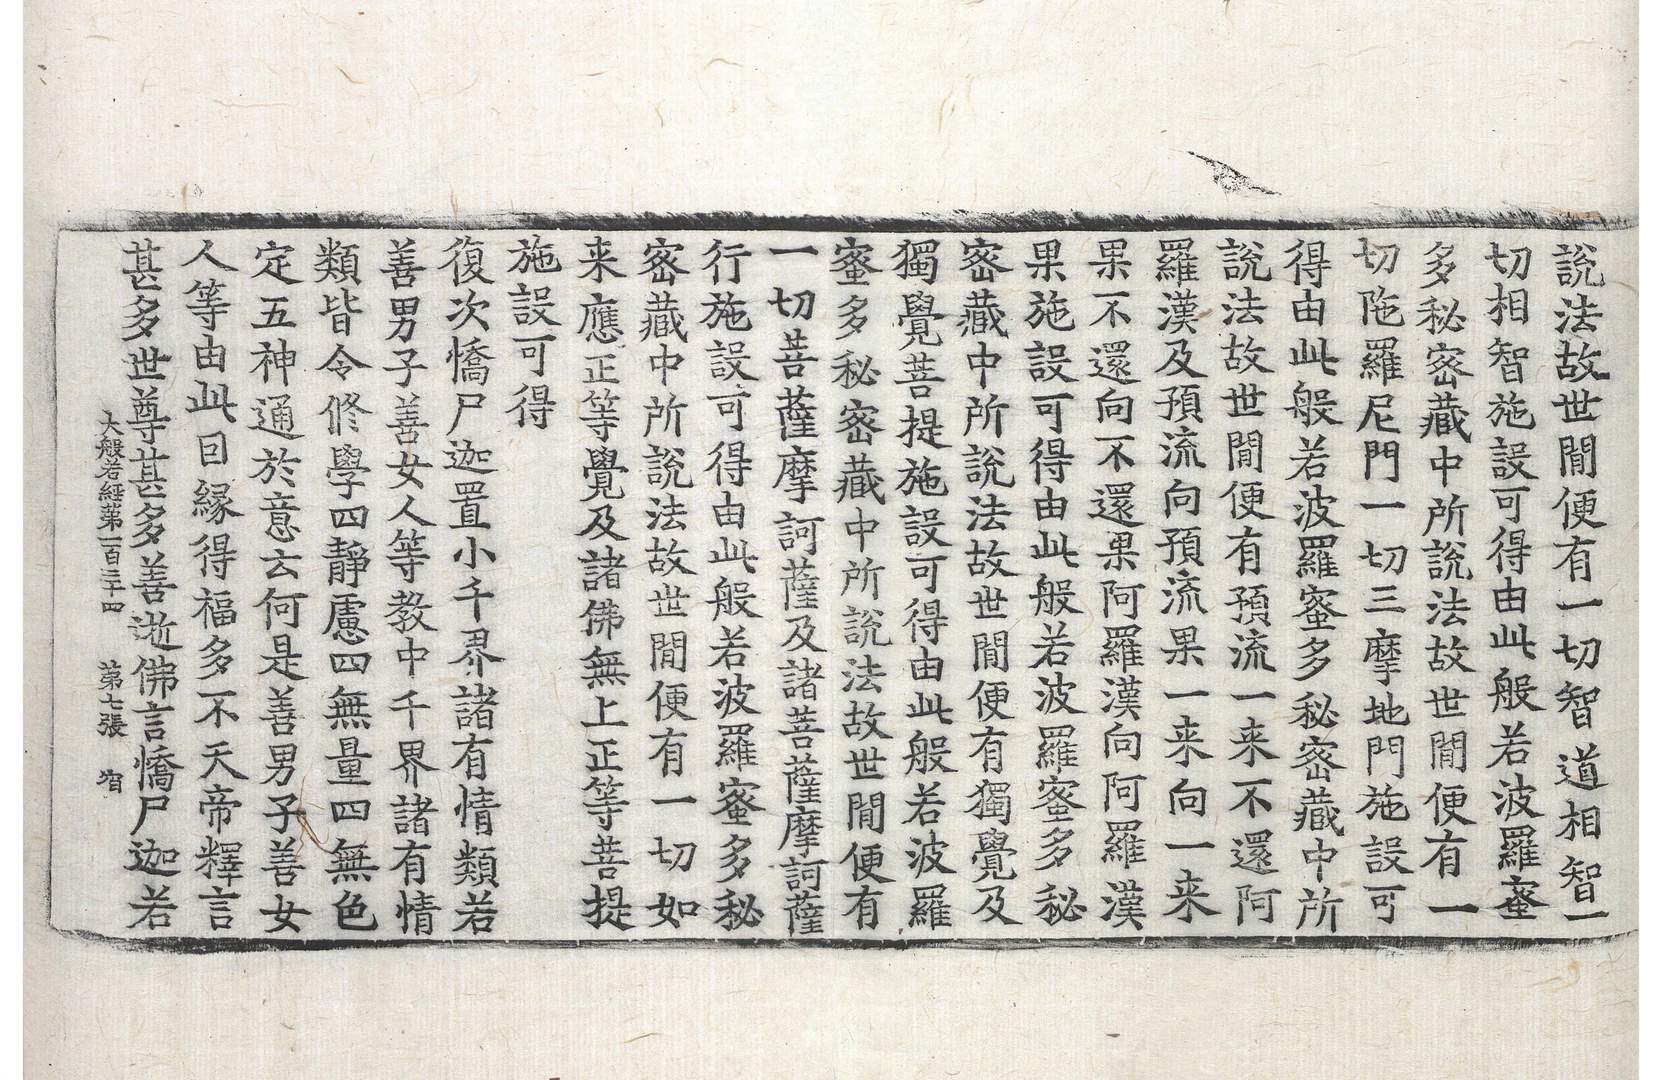 說法故世間便有一切智道相智一
切相智施設可得由此般若波羅蜜
多秘密藏中所說法故世間便有一
切陁羅尼門一切三摩地門施設可
得由此般若波羅蜜多秘密藏中所
說法故世間便有預流一来不還阿
羅漢及預流向預流果一来向一来
果不還向不還果阿羅漢向阿羅漢
果施設可得由此般若波羅蜜多秘
密藏中所說法故世間便有獨覺及
獨覺菩提施設可得由此般若波羅
蜜多秘密藏中所說法故世間便有
一切菩薩摩訶薩及諸菩薩摩訶薩
行施設可得由此般若波羅蜜多秘
密藏中所說法故世間便有一切如
来應正等覺及諸佛無上正等菩提
施設可得
復次憍尸迦置小千界諸有情類若
善男子善女人等教中千界諸有情
類皆令修學四靜慮四無量四無色
定五神通於意云何是善男子善女
人等由此因緣得福多不天帝釋言
甚多世尊甚多善逝佛言憍尸迦若
大般若經第一百三十四 第七張 宿